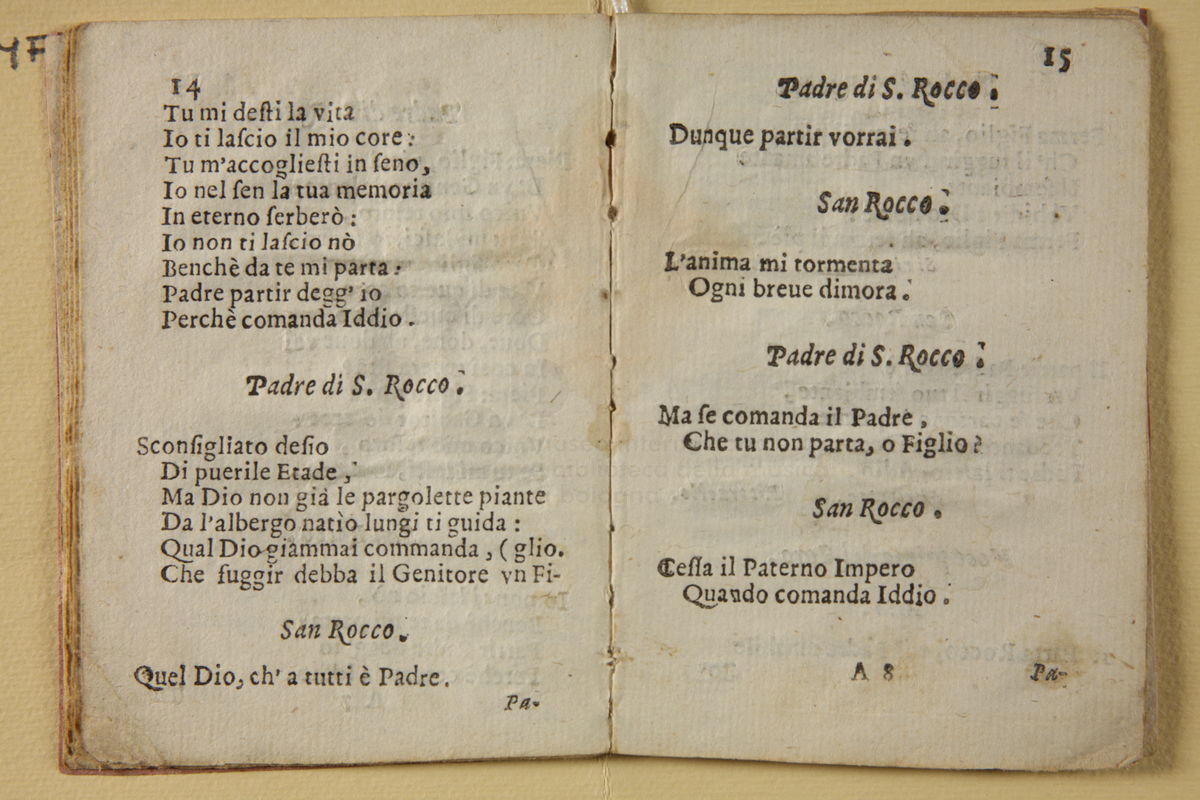 14
Tu mi deſti la vita
Io ti laſcio il mio core:
Tu m'accoglieſti in ſeno,
Io nel ſen la tua memoria
In eterno ſerberò:
Io non ti laſcio nò
Benchè da te mi parta:
Padre partir degg' io
Perchè comanda Iddio.
Padre di S. Rocco.
Sconſigliato deſio
Di puerile Etade,
Ma Dio non già le pargolette piante
Da l'albergo natìo lungi ti guida:
Qual Dio giammai commanda, (glio.
Che fuggir debba il Genitore vn Fi-
San Rocco.
Quel Dio, ch' a tutti è Padre.
Pa-
15
Padre di S. Rocco.
Dunque partir vorrai.
San Rocco.
L'anima mi tormenta
Ogni breue dimora.
Padre di S. Rocco.
Ma ſe comanda il Padre,
Che tu non parta, o Figlio?
San Rocco.
Ceſſa il Paterno Impero
Quando comanda Iddio.
A 8
Pa-